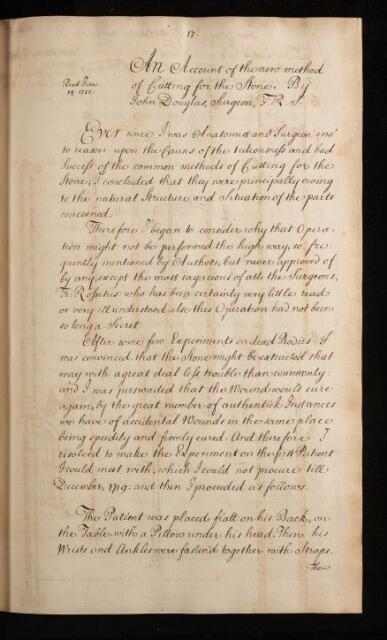 17.
An Account of the new method
of Cutting for the Stone. By
John Douglas, Surgeon, F. R. S.
Read June
Ever since I was Anatomist and Surgeon eno'
to reason upon the Causes of the tediousness and bad
Success of the common methods of Cutting for the
Stone; I concluded that they were principally owing
to the natural Structure and Situation of the parts
concerned.
Therefore I began to consider why that Opera-
tion might not be performed the high way, so fre-
quently mentioned by Authors, but never approved of
by any, except the most sagacious of all the Surgeons,
Fr: Rosetus who has been certainly very little read
or very ill understood, else this Operation had not been
so long a Secret.
After some few Experiments on dead Bodies I
was convinced, that the Stone might be extracted that
way with a great deal less trouble than commonly:
and I was perswaded that the Wound would cure
again, by the great number of authentick Instances
we have of accidental Wounds in the same place
being speedily and firmly cured. And therefore I
resolved to make the Experiment on the first Patient
I could meet with, which I could not procure till
December, 1719: and then I proceeded as follows.
The Patient was placed flatt on his Back, on
the Table with a Pillow under his head. Then his
Wrists and Ankles were fasten'd together with Straps.
Then